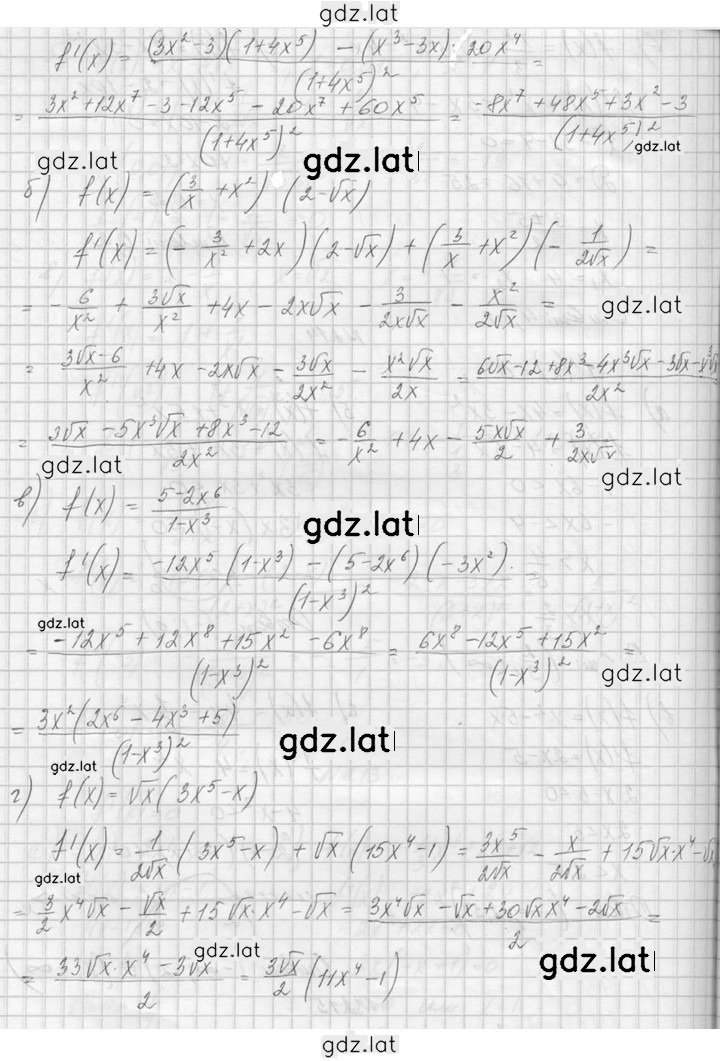 gdz.lat
f'(x) = ((3x²-3)(1+4x⁵) - (x³-3x)·20x⁴)/(1+4x⁵)² =
= (3x²+12x⁷-3-12x⁵-20x⁷+60x⁵)/(1+4x⁵)² = (-8x⁷+48x⁵+3x²-3)/(1+4x⁵)²
gdz.lat gdz.lat gdz.lat
б) f(x) = (3/x + x²) (2-√x)
f'(x) = (-3/x² + 2x)(2-√x) + (3/x + x²)(-1/(2√x)) =
= -6/x² + 3√x/x² + 4x - 2x√x - 3/(2x√x) - x²/(2√x) = gdz.lat
= (3√x-6)/x² + 4x - 2x√x - 3√x/(2x²) - x²√x/(2x) = (6√x-12+8x³-4x³√x-3√x-x³√x)/(2x²)
= (3√x-5x³√x+8x³-12)/(2x²) = -6/x² + 4x - 5x√x/2 + 3/(2x√x)
gdz.lat gdz.lat
в) f(x) = (5-2x⁶)/(1-x³) gdz.lat
f'(x) = (-12x⁵(1-x³) - (5-2x⁶)(-3x²))/(1-x³)² =
gdz.lat
= (-12x⁵+12x⁸+15x²-6x⁸)/(1-x³)² = (6x⁸-12x⁵+15x²)/(1-x³)² =
gdz.lat
= 3x²(2x⁶-4x³+5)/(1-x³)² gdz.lat
gdz.lat
г) f(x) = √x(3x⁵-x)
f'(x) = 1/(2√x) (3x⁵-x) + √x(15x⁴-1) = 3x⁵/(2√x) - x/(2√x) + 15√x·x⁴-√x
gdz.lat
= 3/2 x⁴√x - √x/2 + 15√x·x⁴-√x = (3x⁴√x-√x+30√x x⁴-2√x)/2 =
gdz.lat gdz.lat
= (33√x·x⁴-3√x)/2 = 3√x/2 (11x⁴-1)
gdz.lat